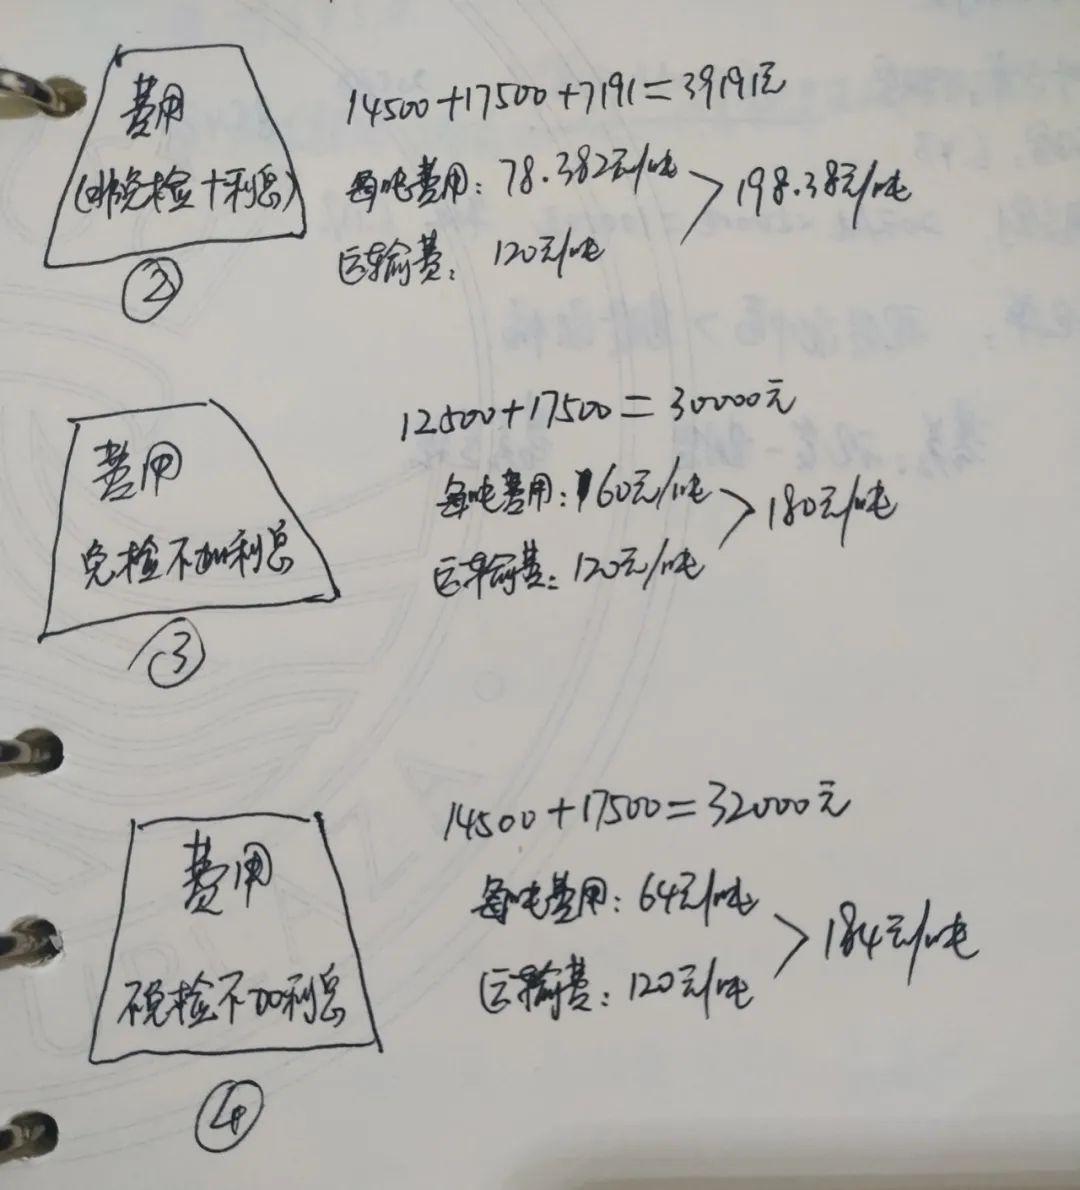 费用
(非免检+利息)
②
14500+17500+7191=39191元
每吨费用：78.382元/吨
198.38元/吨
运输费：120元/吨
费用
免检不加利息
③
12500+17500=30000元
每吨费用：60元/吨
180元/吨
运输费：120元/吨
费用
不免检不加利息
④
14500+17500=32000元
每吨费用：64元/吨
184元/吨
运输费：120元/吨